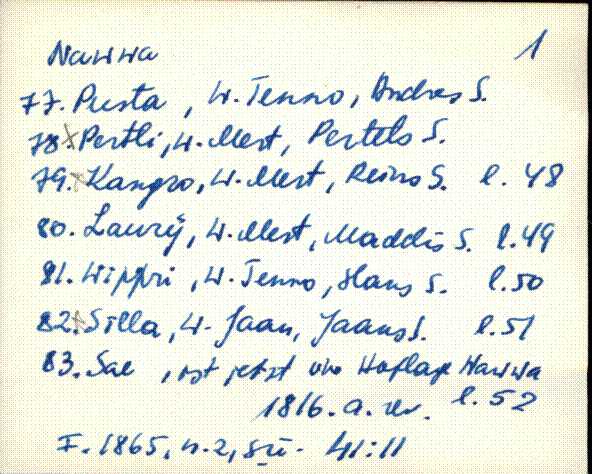 Nawwa 1
77. Pusta, W. Tenno, Andres S.
78 x Pertli, W. Mert, Pertels S.
79. x Kangro, W. Mert, Reins S. l. 48
80. Laurÿ, W. Mert, Maddis S. l. 49
81. Wippri, W. Tenno, Hans S. l. 50
82. x Silla, W. Jaan, Jaans S. l. 51
83. Sae, ist jetzt Hoflage Nawwa
1816. a. rev. l. 52
F. 1865, n. 2, sü. 41:11